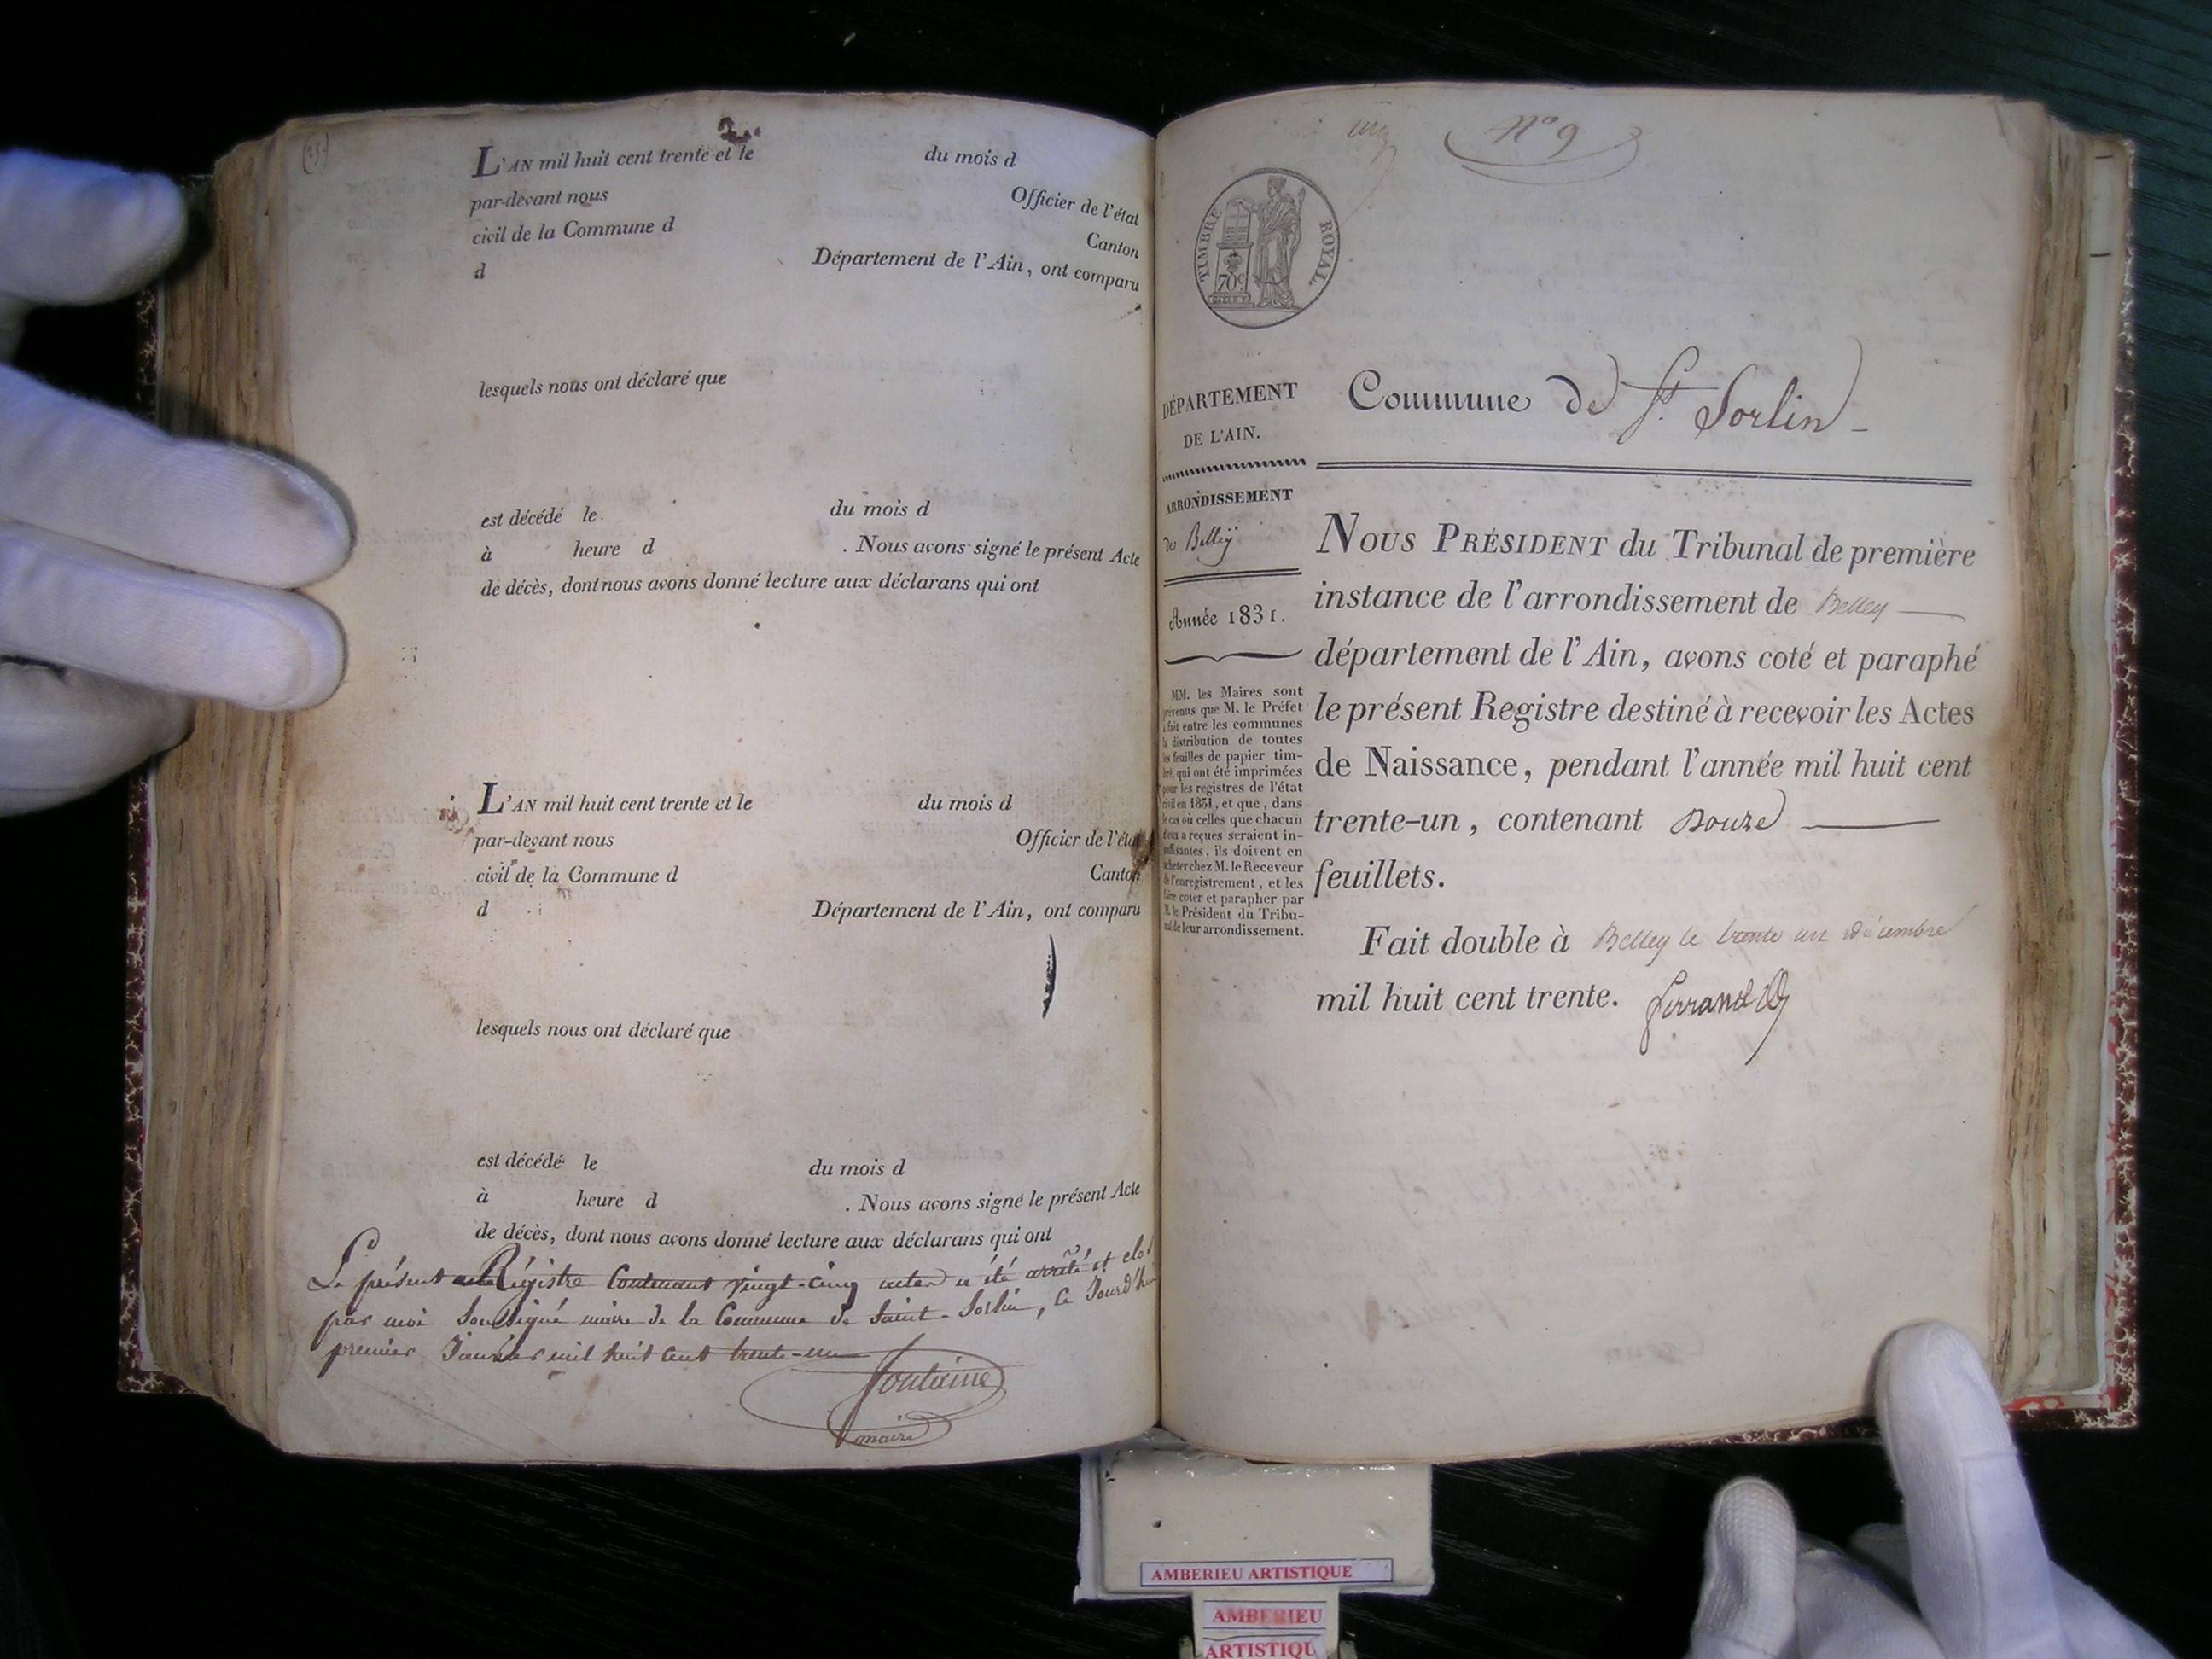 L'AN mil huit cent trente et le du mois d
par-devant nous Officier de l'état
civil de la Commune d Canton
d Département de l'Ain, ont comparu
lesquels nous ont déclaré que
est décédé le du mois d
à heure d . Nous avons signé le présent Acte
de décès, dont nous avons donné lecture aux déclarans qui ont
L'AN mil huit cent trente et le du mois d
par-devant nous Officier de l'état
civil de la Commune d Canton
d Département de l'Ain, ont comparu
lesquels nous ont déclaré que
est décédé le du mois d
à heure d . Nous avons signé le présent Acte
de décès, dont nous avons donné lecture aux déclarans qui ont
Le présent Régistre Contenant vingt-cinq actes a été arrêté et clos
par moi Soussigné maire de la Commune de Saint-Sorlin, ce Jourd'hui
premier Janvier mil huit cent trente-un
Fontaine
maire
un
N° 9
TIMBRE ROYAL
70c
DÉPARTEMENT
DE L'AIN.
ARRONDISSEMENT
de Belley
Année 1831.
MM. les Maires sont
prévenus que M. le Préfet
a fait entre les communes
la distribution de toutes
les feuilles de papier tim-
bré, qui ont été imprimées
pour les registres de l'état
civil en 1831, et que, dans
le cas où celles que chacun
d'eux a reçues seraient in-
suffisantes, ils doivent en
acheter chez M. le Receveur
de l'enregistrement, et les
faire coter et parapher par
M. le Président du Tribu-
nal de leur arrondissement.
Commune de St. Sorlin
NOUS PRÉSIDENT du Tribunal de première
instance de l'arrondissement de Belley
département de l'Ain, avons coté et paraphé
le présent Registre destiné à recevoir les Actes
de Naissance, pendant l'année mil huit cent
trente-un, contenant Douze
feuillets.
Fait double à Belley le trente un décembre
mil huit cent trente. ferrand
AMBERIEU ARTISTIQUE
AMBERIEU
ARTISTIQU